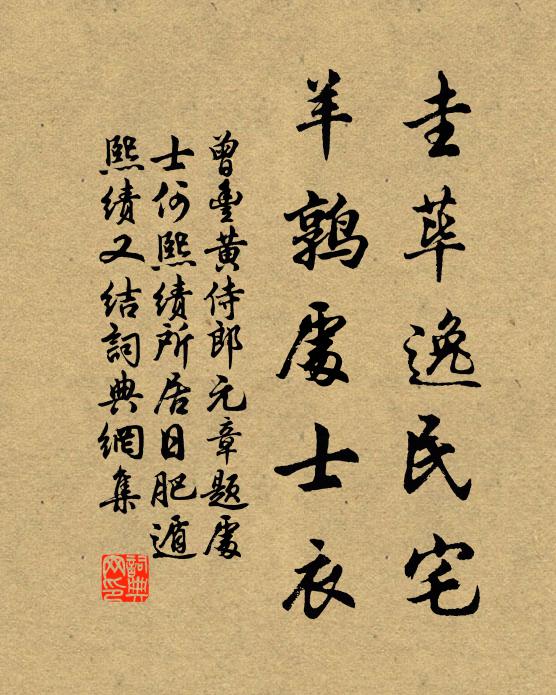 圭荜逸民宅
羊鹑處士衣
曾豊黄侍郎元章題處
士何熙績所居日肥遁
熙績又结詞典網集
詞典网印